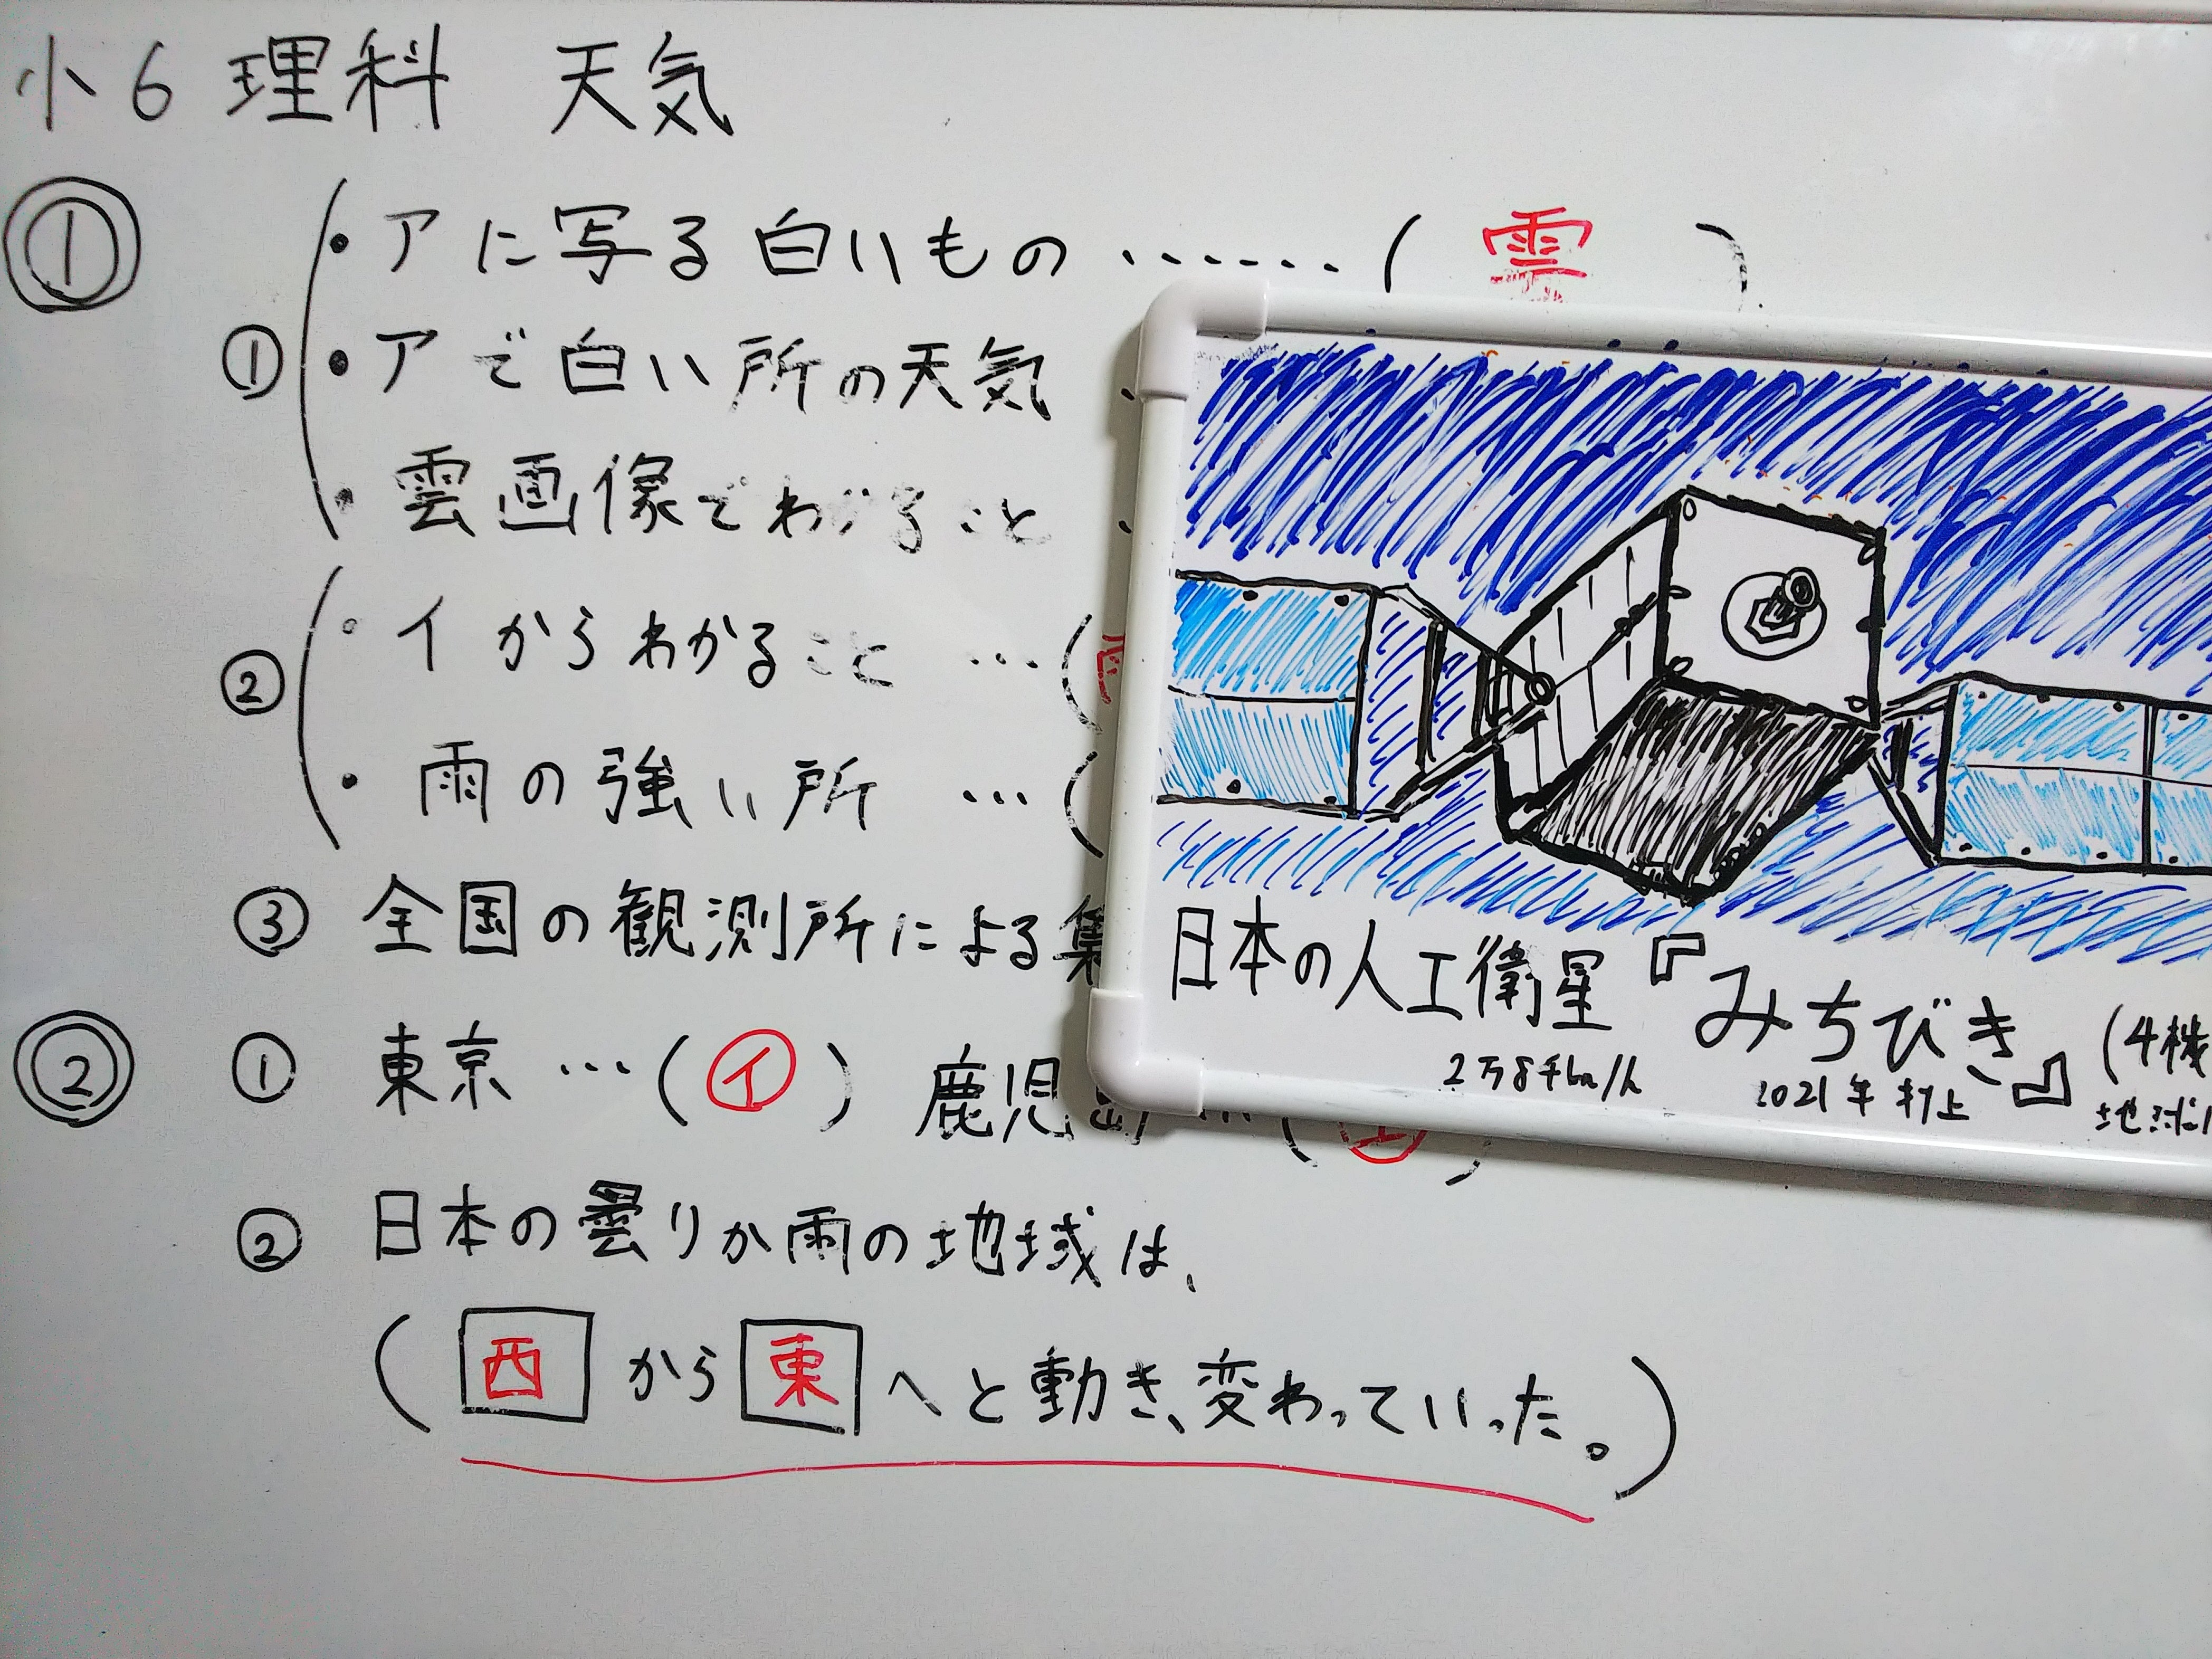 小6 理科 天気
① ① ・アに写る白いもの……(雲)
・アで白い所の天気
・雲画像でわかること
② ・イからわかること …(
・雨の強い所 …(
③ 全国の観測所による
② ① 東京…(イ) 鹿児島
② 日本の曇りか雨の地域は、
(西から東へと動き、変わっていった。)
日本の人工衛星『みちびき』(4機
2万8千km/h 2021年打上 地球